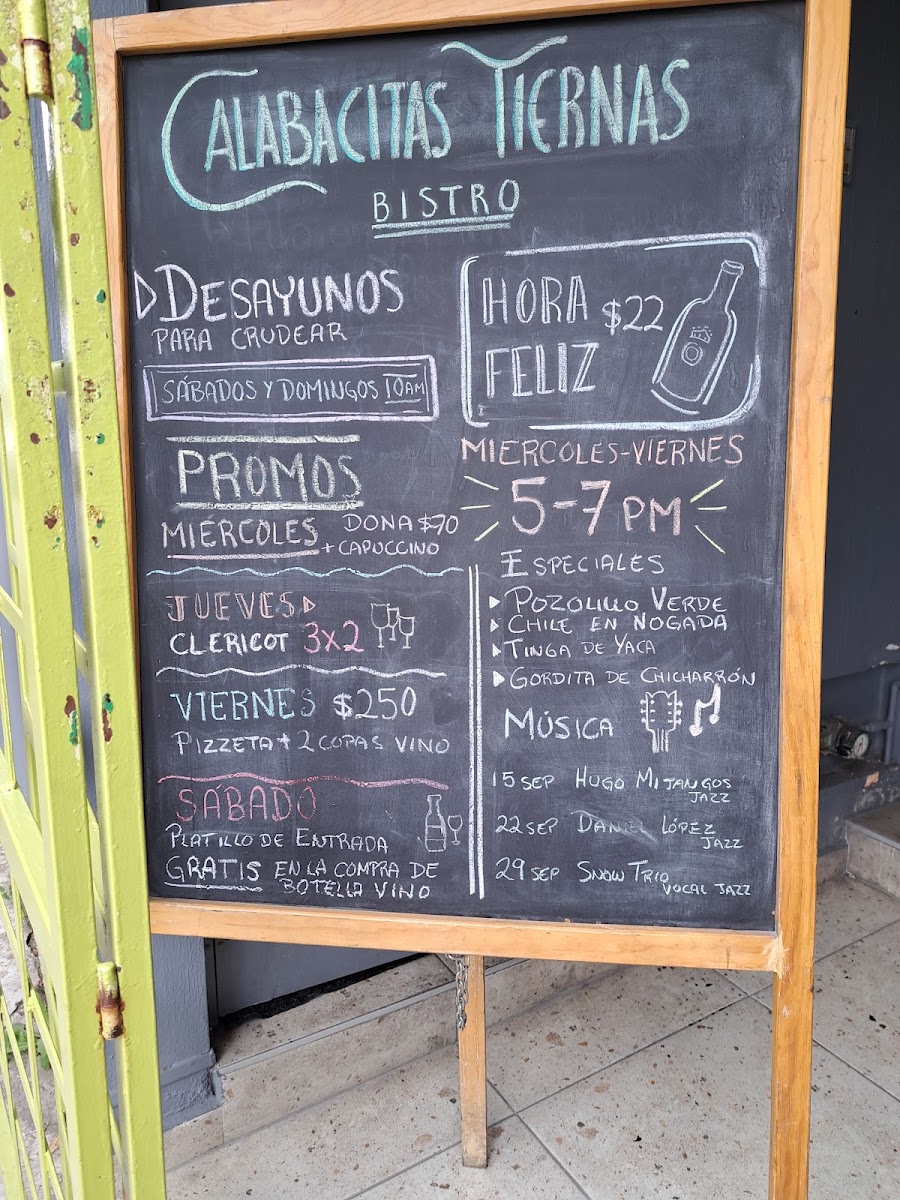 CALABACITAS TIERNAS
BISTRO
DESAYUNOS
PARA CRUDEAR
SÁBADOS Y DOMINGOS 10AM
PROMOS
MIÉRCOLES DONA $70
+ CAPUCCINO
JUEVES
CLERICOT 3x2
VIERNES $250
PIZZETA + 2 COPAS VINO
SÁBADO
PLATILLO DE ENTRADA
GRATIS EN LA COMPRA DE
BOTELLA VINO
HORA $22
FELIZ
MIERCOLES-VIERNES
5-7 PM
ESPECIALES
POZOLILLO VERDE
CHILE EN NOGADA
TINGA DE YACA
GORDITA DE CHICHARRÓN
MÚSICA
15 SEP HUGO MIJANGOS
JAZZ
22 SEP DANIEL LÓPEZ
JAZZ
29 SEP SNOW TRIO
VOCAL JAZZ